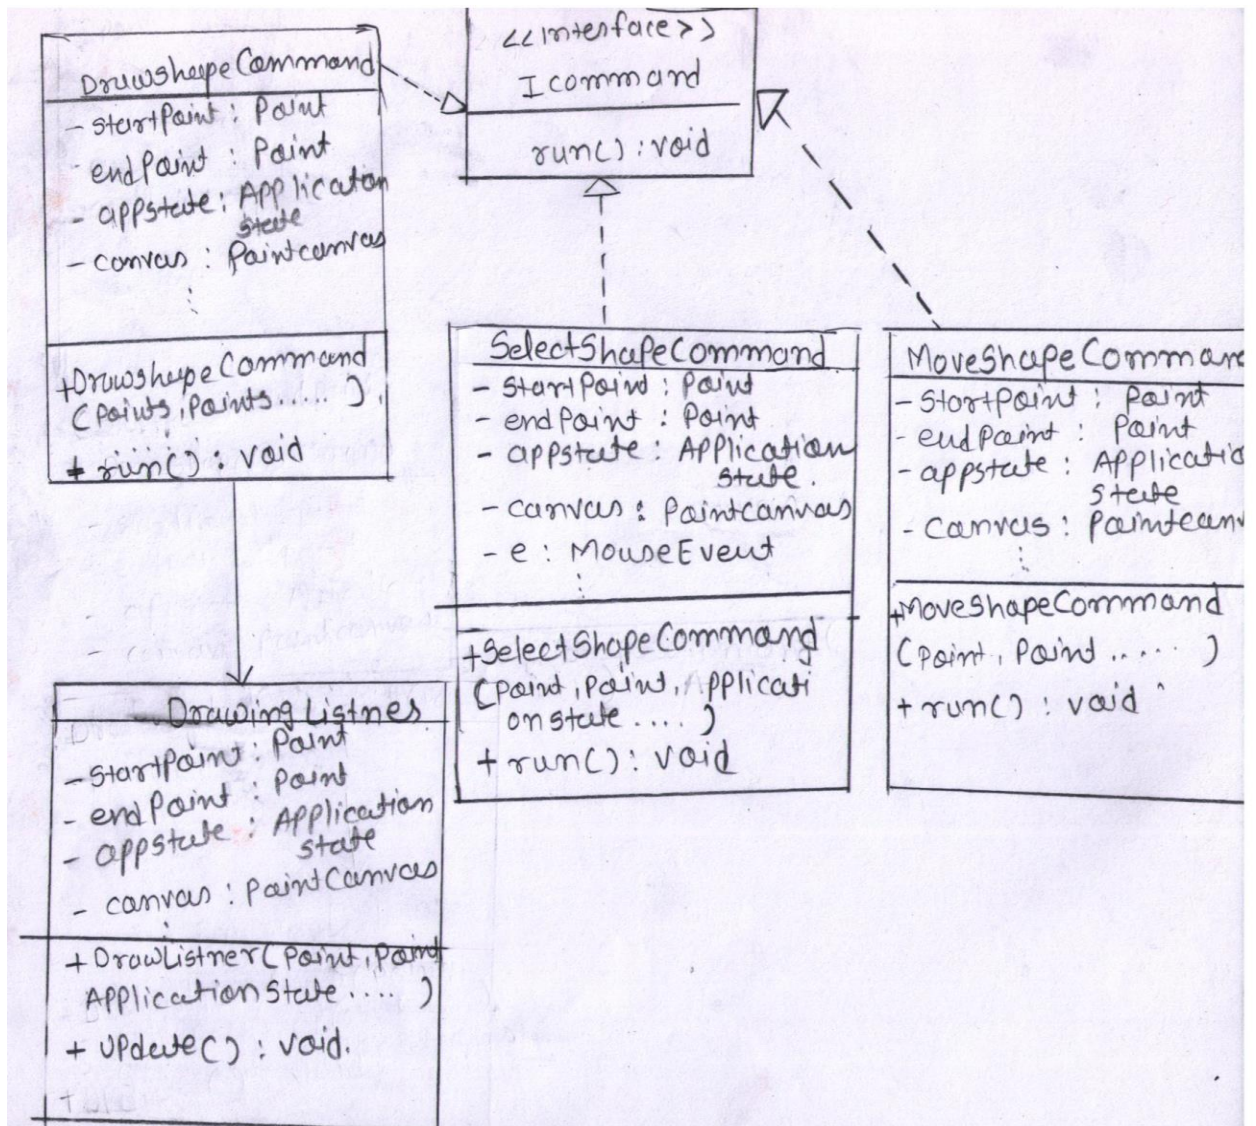 DrawshapeCommand
- startPoint : Point
- endPoint : Point
- appstate : Application
state
- canvas : Paintcanvas
+Drawshape Command
(Points, Points ..... ).
+ run() : void
<<Interface>>
I command
run() : void
SelectShapeCommand
- startPoint : Point
- endPoint : Point
- appstate : Application
state.
- canvas : Paintcanvas
- e : MouseEvent
+SelectShapeCommand
(Point, Point, Applicati
on state .... )
+ run() : void
MoveShape Comman
- StartPoint : Point
- endPoint : Point
- appstate : Applicatio
state
- Canvas : Paintcanv
+MoveShapeCommand
(Point, Point ..... )
+ run() : void
Drawing Listnes
- StartPoint : Point
- endPoint : Point
- appstate : Application
state
- canvas : PaintCanvas
+ DrawListner(Point, Point
Application State .... )
+ UPdate() : void.